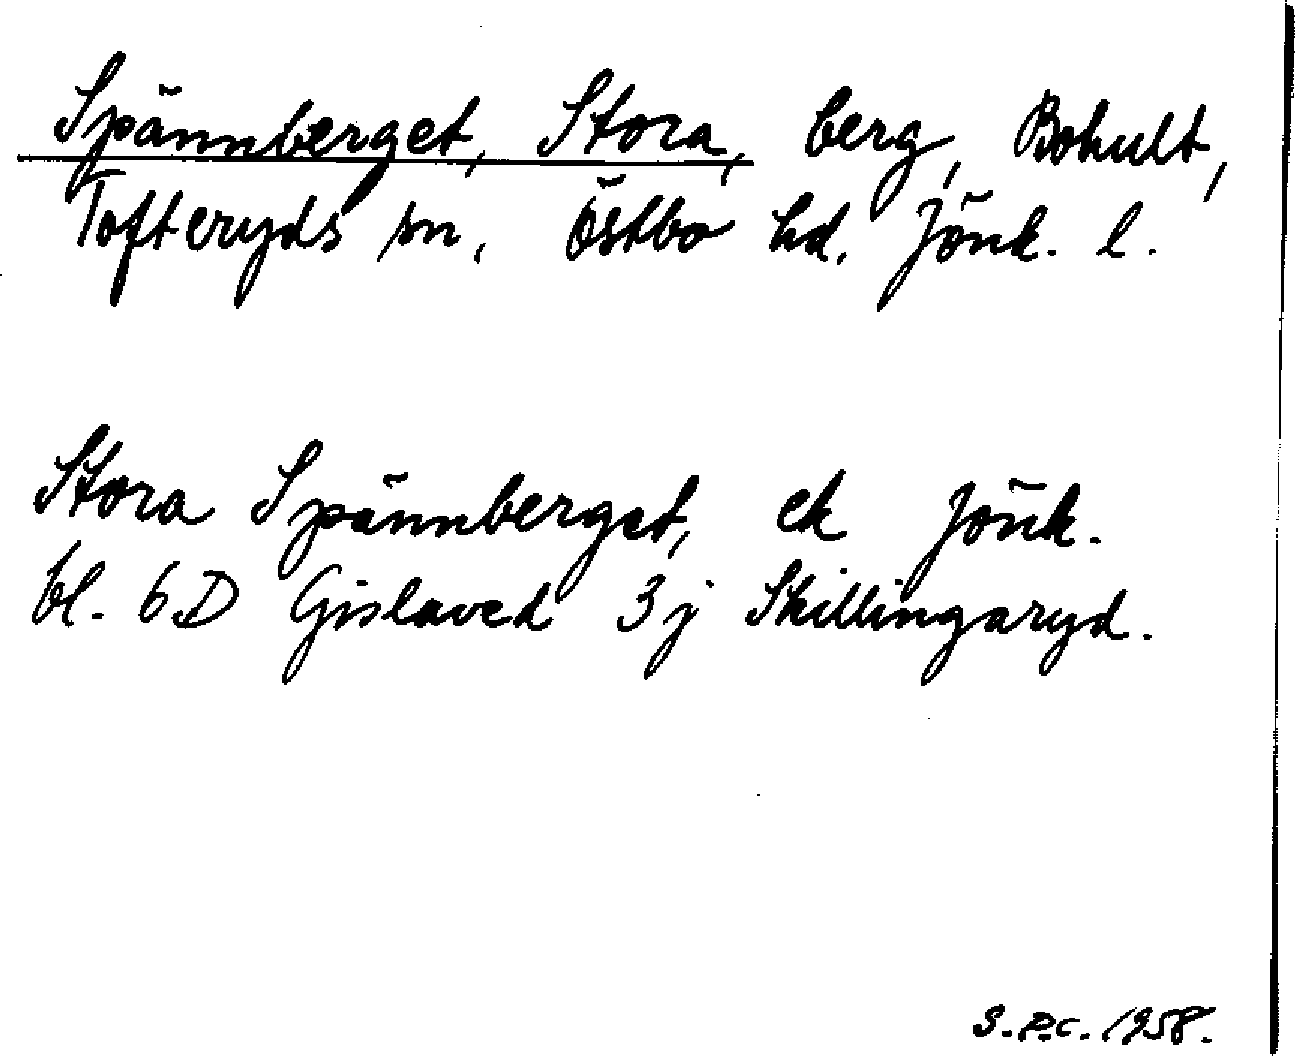 Spännberget, Stora, berg, Bohult,
Tofteryds sn, Östbo hd. Jönk. l.
Stora Spännberget, ek Jönk.
bl. 6D Gislaved 3j Skillingaryd.
S.P.C. 1958.